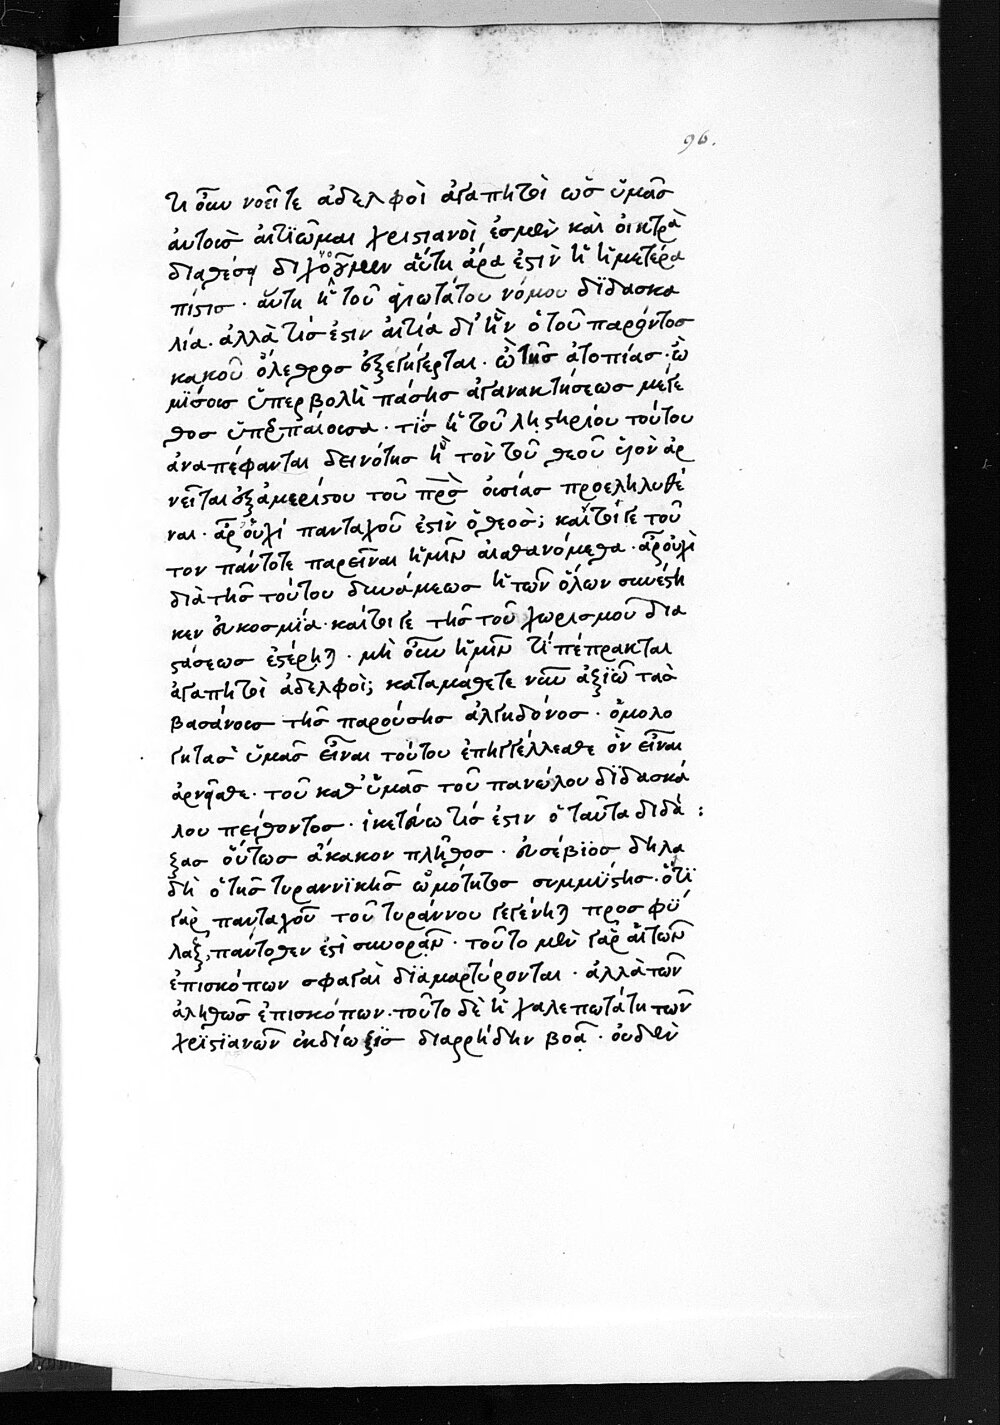 96.
τι οὖν νοεῖτε ἀδελφοὶ ἀγαπητοὶ ὡς ὑμᾶς
αὐτοὺς αἰτιῶμαι χριστιανοὶ ἐσμὲν καὶ οἰκτρᾷ
διαθέσει διχονοοῦμεν αὕτη ἄρα ἐστὶν ἡ ἡμετέρα
πίστις · αὕτη ἡ τοῦ ἁγιωτάτου νόμου διδασκα
λία · ἀλλὰ τίς ἐστιν αἰτία δι' ἣν ὁ τοῦ παρόντος
κακοῦ ὄλεθρος ἐξεγήγερται · ὢ τῆς ἀτοπίας · ὢ
μίσους ὑπερβολὴ πάσης ἀγανακτήσεως μέγε
θος ὑπερπαίουσα · τίς ἡ τοῦ ληστηρίου τούτου
ἀναπέφανται δεινότης ἣ τὸν τοῦ θεοῦ υἱὸν ἀρ
νεῖται ἐξ ἀμερίστου τοῦ πρσ οὐσίας προεληλυθέ
ναι · ἆρ' οὐχὶ πανταχοῦ ἐστὶν ὁ θεὸς; καίτοιγε τοῦ
τον πάντοτε παρεῖναι ἡμῖν αἰσθανόμεθα · ἆρ οὐχὶ
διὰ τῆς τούτου δυνάμεως ἡ τῶν ὅλων συνέστη
κεν εὐκοσμία · καίτοιγε τῆς τοῦ χωρισμοῦ δια
στάσεως ἐστέρηται · μὴ οὖν ἡμῖν τί πέπρακται
ἀγαπητοὶ ἀδελφοὶ; καταμάθετε νῦν ἀξιῶ τὰς
βασάνους τῆς παρούσης ἀλγηδόνος · ὁμολο
γητὰς ὑμᾶς εἶναι τούτου ἐπηγγέλλεσθε ὃν εἶναι
ἀρνεῖσθε · τοῦ καθ' ὑμᾶς τοῦ πανώλου διδασκά
λου πείθοντος · ἱκετεύω τίς ἐστιν ὁ ταῦτα διδά :
ξας οὕτως ἄκακον πλῆθος · εὐσέβιος δηλα
δὴ ὁ τῆς τυραννικῆς ὠμότητος συμμύστης · ὅτι
γὰρ πανταχοῦ τοῦ τυράννου γεγένηται προσφύ
λαξ, πάντοθεν ἔστι συνορᾷν · τοῦτο μὲν γὰρ αἱ τῶν
ἐπισκόπων σφαγαὶ διαμαρτύρονται · ἀλλὰ τῶν
ἀληθῶς ἐπισκόπων · τοῦτο δὲ ἡ χαλεπωτάτη τῶν
χριστιανῶν ἐκδίωξις διαρρήδην βοᾷ · οὐδὲν